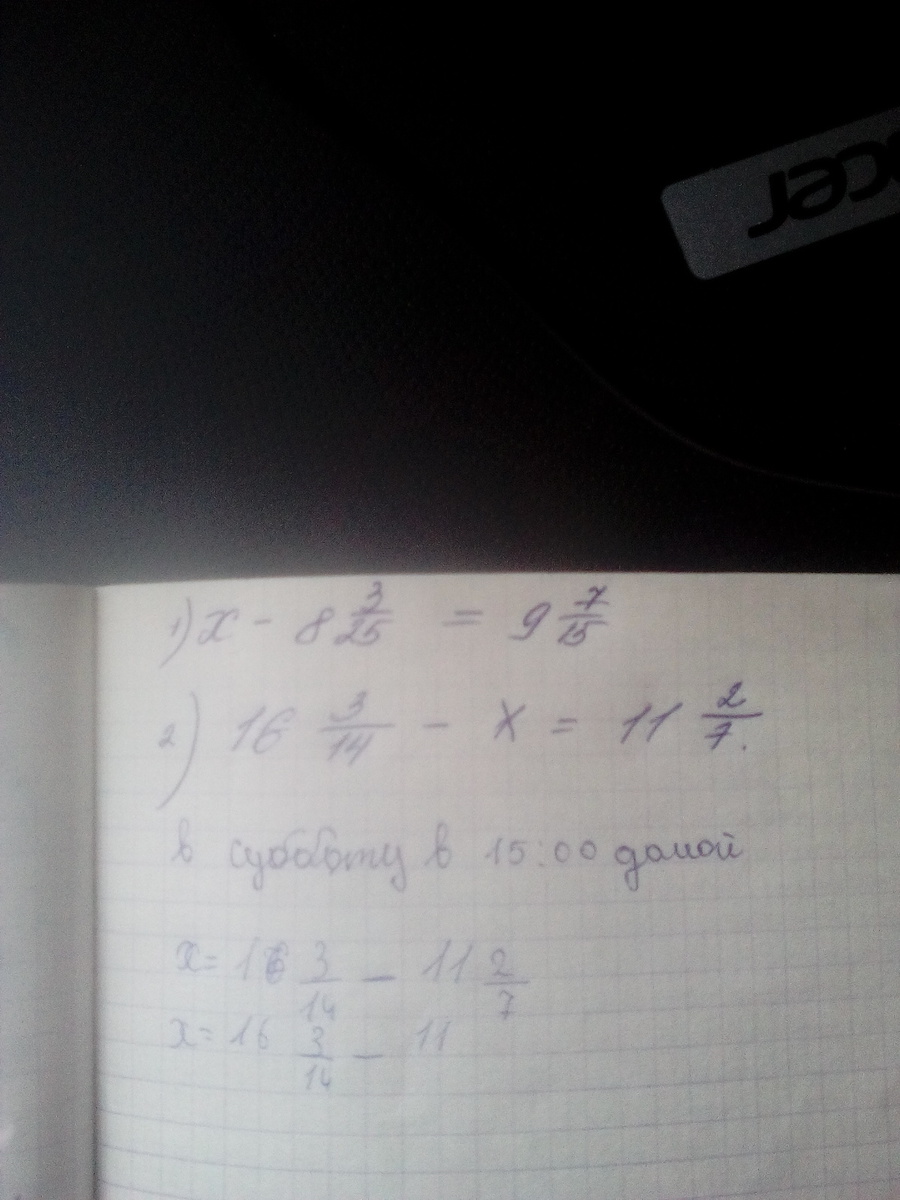 acer
1) x - 8 3/25 = 9 7/15
2) 16 3/14 - x = 11 2/7.
в субботу в 15:00 домой
x = 16 3/14 - 11 2/7
x = 16 3/14 - 11